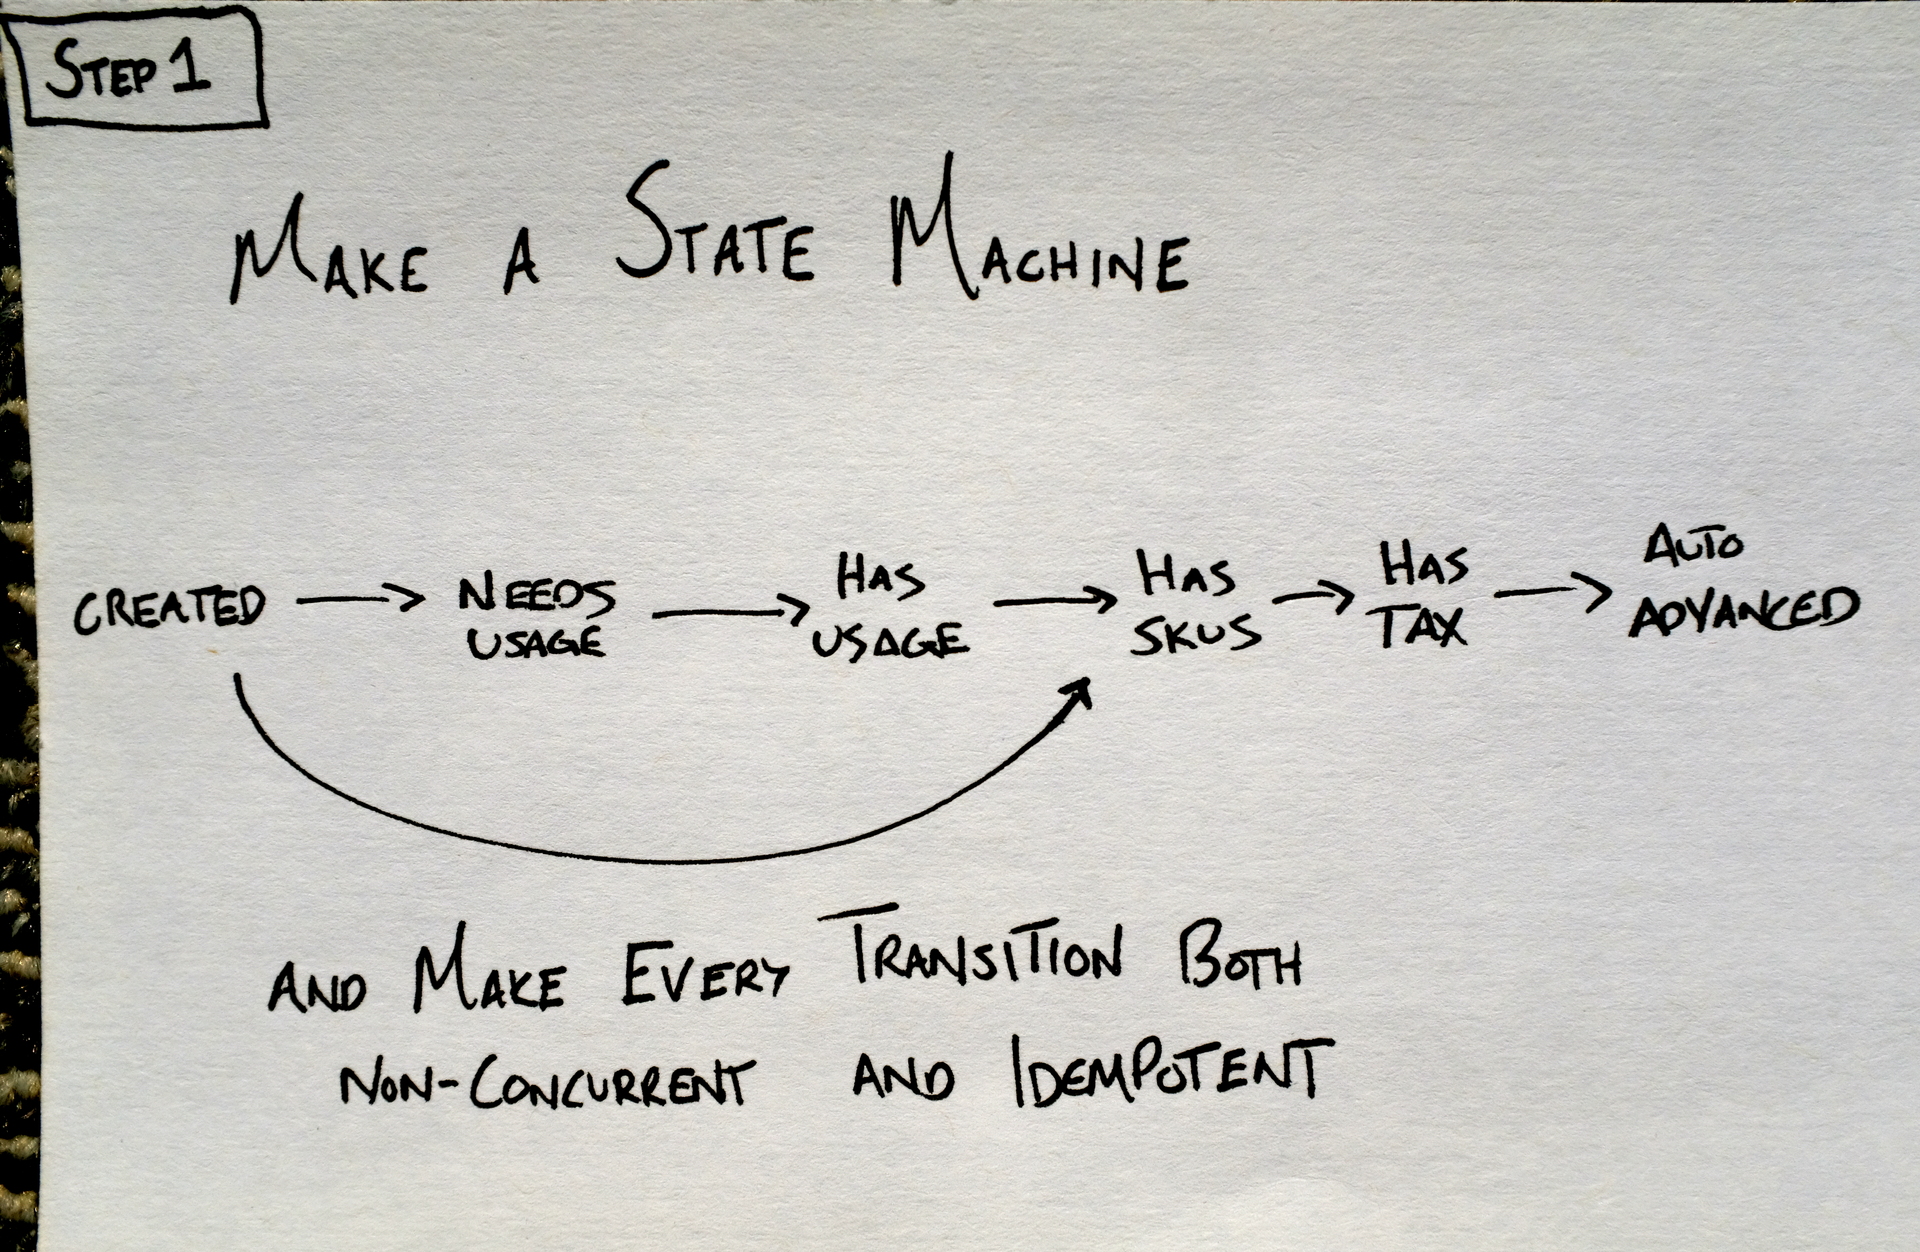 STEP 1
MAKE A STATE MACHINE
CREATED
NEEDS
USAGE
HAS
USAGE
HAS
SKUS
HAS
TAX
AUTO
ADVANCED
AND MAKE EVERY TRANSITION BOTH
NON-CONCURRENT AND IDEMPOTENT